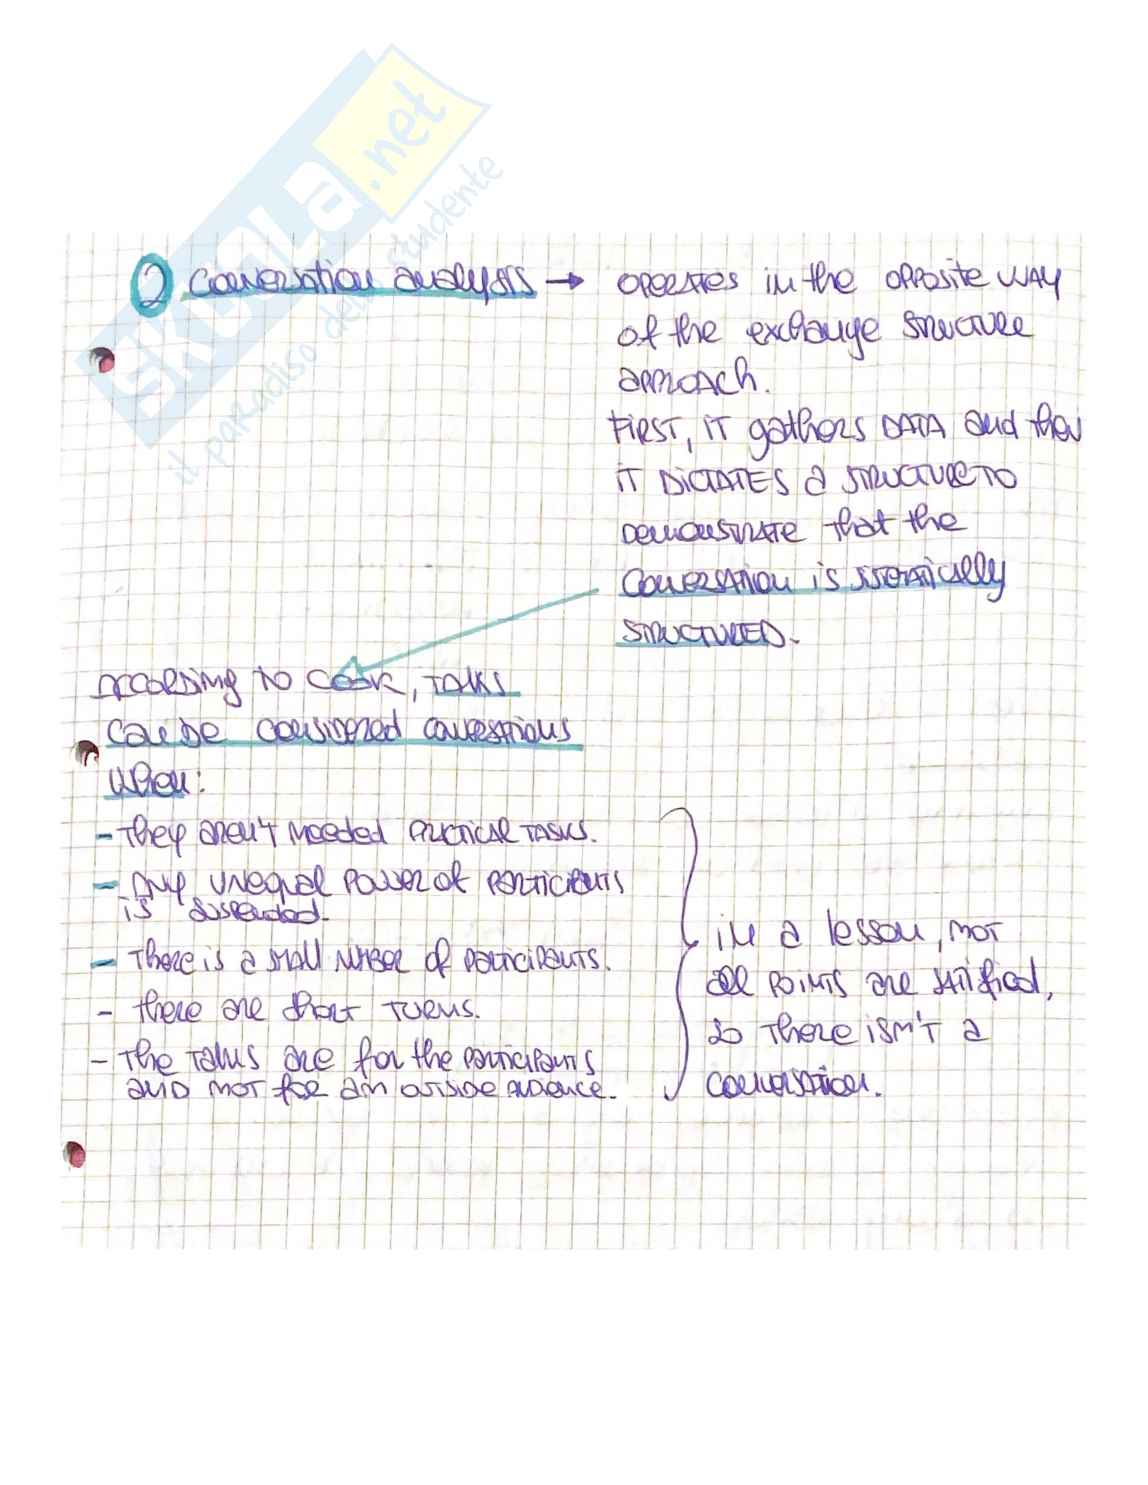 SKUOLA.net
il paradiso dello studente
2 Conversation analysis → OPERATES in the OPPOSITE WAY
of the exchange STRUCTURE
APPROACH.
FIRST, IT gathers DATA and then
iT DICTATES a STRUCTURE TO
DEMONSTRATE that the
CONVERSATION is SISTEMATICALLY
STRUCTURED.
ACCORDING TO COOK, TALKS
CAN BE CONSIDERED CONVERSATIONS
WHEN:
- They aren't needed PRACTICAL TASKS.
- ANY UNEQUAL POWER of PARTICIPANTS
iS SUSPENDED.
- There is a small NUMBER of PARTICIPANTS.
- there are short TURNS.
- The TALKS are for the PARTICIPANTS
AND NOT FOR AN OUTSIDE AUDIENCE.
iN a lesson, NOT
all POINTS are satisfied,
so There iSN'T a
CONVERSATION.